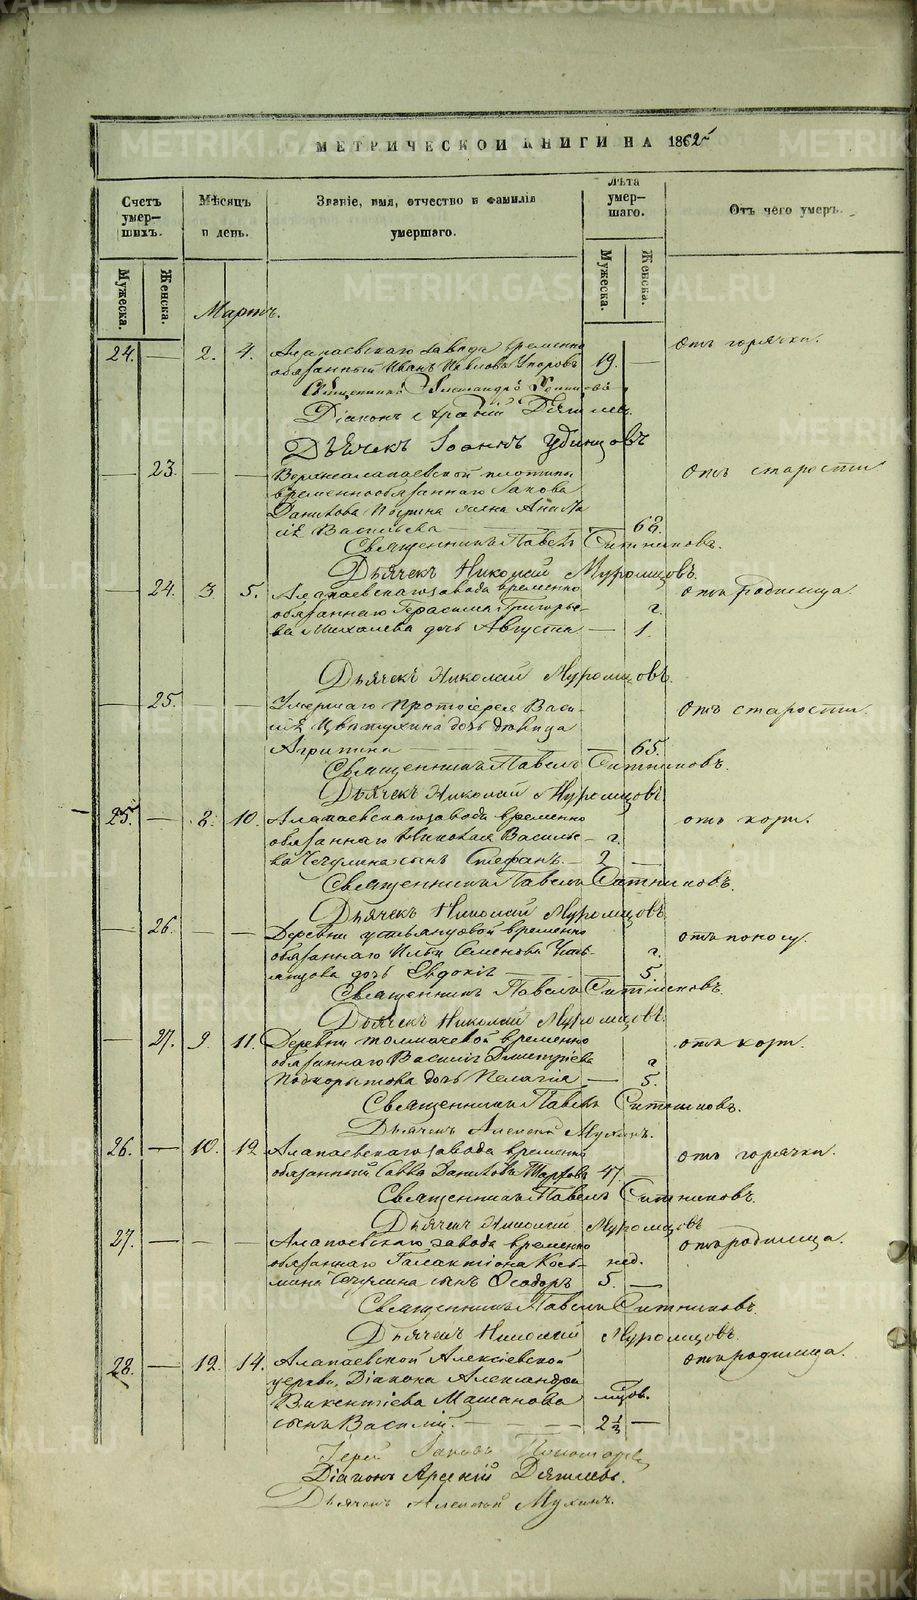 МЕТРИЧЕСКОЙ КНИГИ НА 1865
Счетъ умер-шихъ.
Мѣсяцъ и день.
Званіе, имя, отчество и фамилія умершаго.
Лѣта умер-шаго.
Отъ чего умеръ.
Мужеска.
Женска.
Мужеска.
Женска.
Мартъ.
24. — 2. 4. Алапаевскаго завода временно 19. — Отъ горячки.
обязанный Иванъ Павловъ
Священникъ Александръ
Діаконъ Арсеній Дягилевъ.
Дьячекъ Іоаннъ Удинцовъ
— 23. — — Верхнеалапаевской плотины Отъ старости
временнообязаннаго Іакова
Данилова жена
Васильева — 68.
Священникъ Павелъ Ситниковъ.
Дьячекъ Николай Муромцовъ.
— 24. 3 5. Алапаевскаго завода временно отъ родимца.
обязаннаго Герасима Григорье- г.
ва Михалева дочь Августа — 1.
Дьячекъ Николай Муромцовъ.
— 25. — — Умершаго Протоіерея Васи- Отъ старости.
лія дочь дѣвица
Агрипина — 65.
Священникъ Павелъ Ситниковъ.
Дьячекъ Николай Муромцовъ
25. — 8. 10. Алапаевскаго завода временно отъ кори.
обязаннаго Николая Василье- г.
ва Чечулина сынъ Стефанъ. — 2 —
Священникъ Павелъ Ситниковъ.
Дьячекъ Николай Муромцовъ.
— 26. — — Деревни временно отъ поносу.
обязаннаго Ильи Семенова г.
дочь Евдокія — 5.
Священникъ Павелъ Ситниковъ.
Дьячекъ Николай Муромцовъ.
— 27. 9. 11. Деревни Толмачевой временно отъ кори.
обязаннаго Василія Димитріева г.
Подкорытова дочь Пелагія — 5.
Священникъ Павелъ Ситниковъ.
Дьячекъ Алексѣй Мухинъ.
26. — 10. 12. Алапаевскаго завода временно отъ горячки.
обязанный Савва Даниловъ 47 —
Священникъ Павелъ Ситниковъ.
Дьячекъ Николай Муромцовъ
27. — — — Алапаевскаго завода временно отъ родимца.
обязаннаго Галактіона Козь- нед.
мина Чечулина сынъ Ѳеодоръ 5. —
Священникъ Павелъ Ситниковъ.
Дьячекъ Николай Муромцовъ.
28. — 12. 14. Алапаевской Алексіевской отъ родимца.
церкви, Діакона Александра
Викентіева мцов.
сынъ Василій. — 2 ½ —
Іерей Іаковъ Пономаревъ
Діаконъ Арсеній Дягилевъ.
Дьячекъ Алексѣй Мухинъ.
METRIKI.GASO-URAL.RU